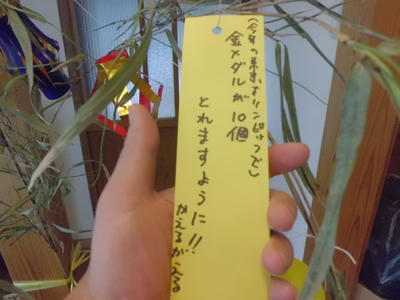 (今年の東京オリンピックで)
金メダルが10個
とれますように!!
かえるがえる